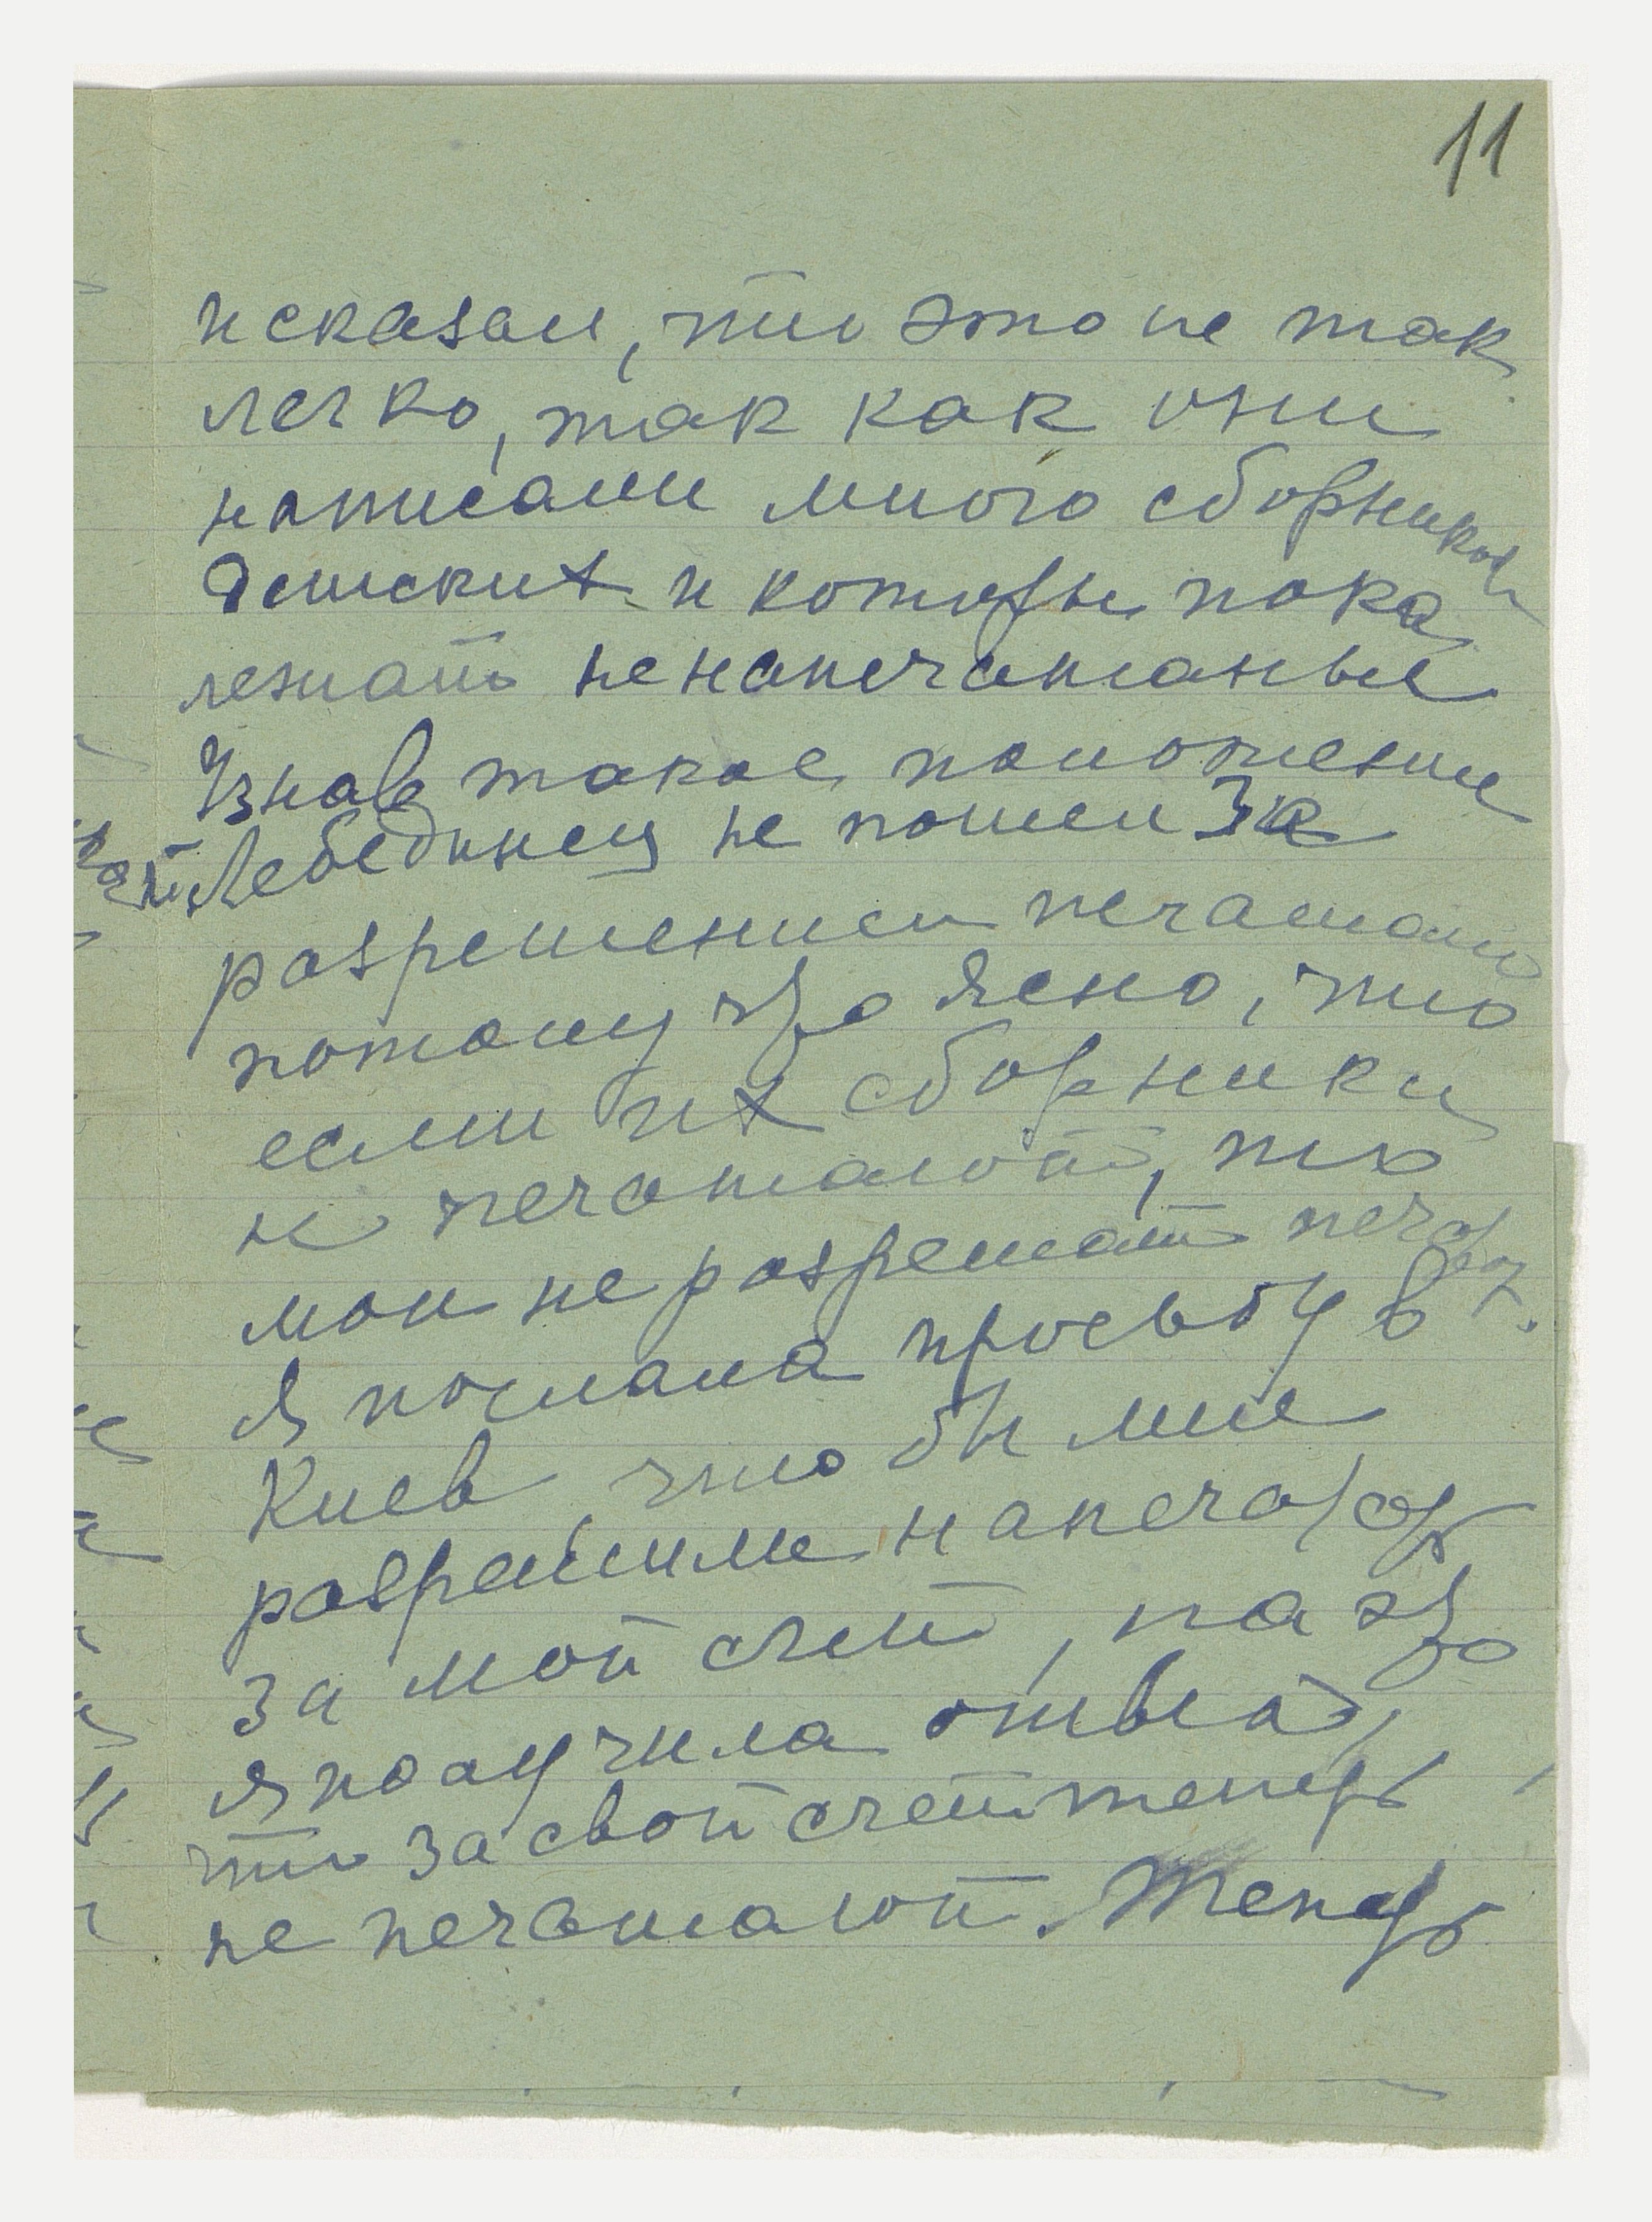 11
и сказал, что это не так
легко, так как они
написали много сборников
детских и которы пока
лежать ненапечатанные
Узнав такое положение
Лебединец не пошел за
разрешением печатать
потому что ясно, что
если их сборники
не печатают, то
мои не разрешат печатать.
Я послала просьбу в
Киев что бы мне
разрешили напечатать
за мой счет, на что
я получила ответ,
что за свой счет теперь
не печатают. Теперь